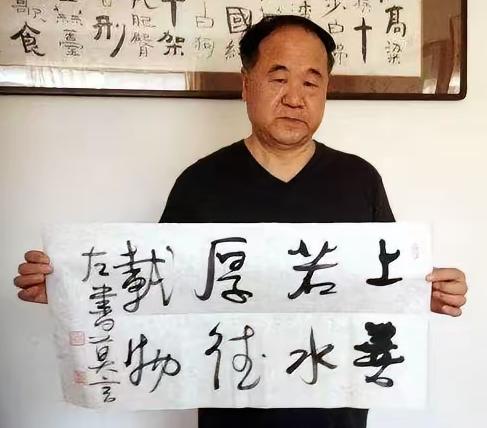 高粱
十
白
國
十架
刑
食
上善
若水
厚德
載物
左書莫言